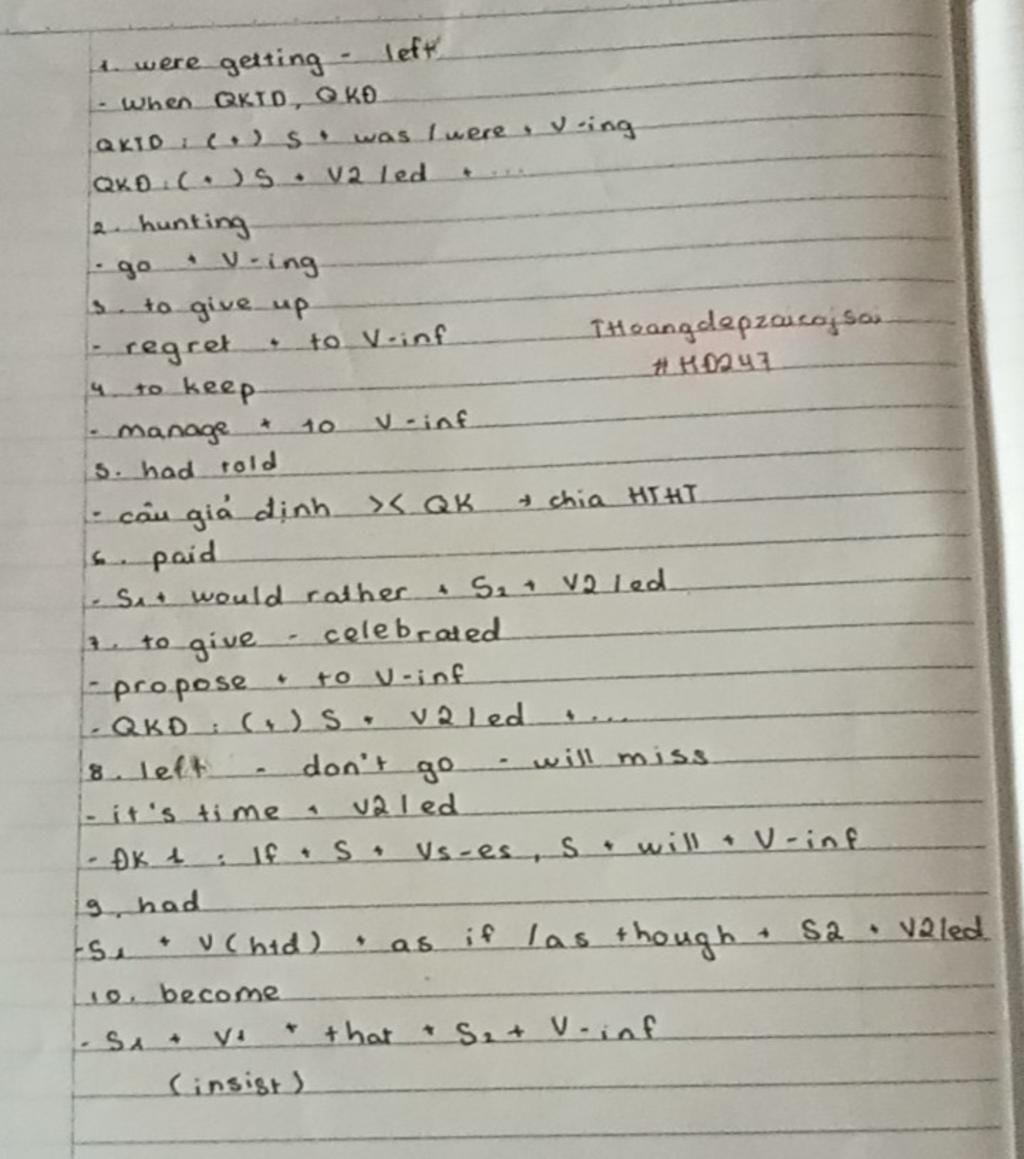 1. were getting - left
- when QKTD, QKĐ
QKTD : (+) S + was / were + V-ing
QKĐ : (+) S + V2 / ed + ...
2. hunting
- go + V-ing
3. to give up
- regret + to V-inf
THoangdepzaicojsai
#HD247
4. to keep
- manage + to V-inf
5. had told
- câu giả định >< QK → chia HTHT
6. paid
- S1 + would rather + S2 + V2 / ed
7. to give - celebrated
- propose + to V-inf
- QKĐ : (+) S + V2 / ed + ...
8. left - don't go - will miss
- it's time + V2 / ed
- ĐK 1 : If + S + Vs-es, S + will + V-inf
9. had
- S1 + V(htđ) + as if / as though + S2 + V2/ed
10. become
- S1 + V1 + that + S2 + V-inf
(insist)